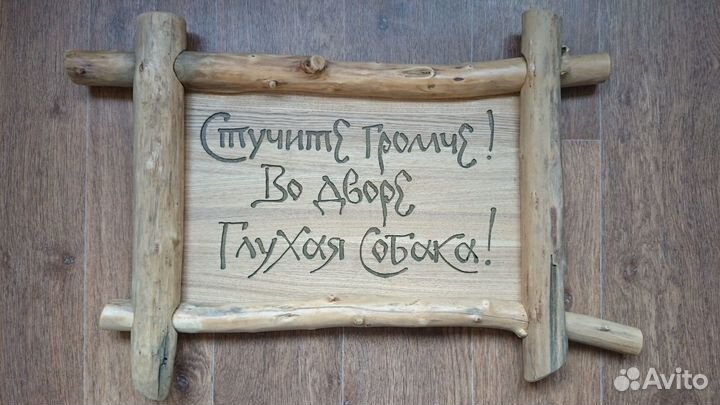 Стучите громче!
Во дворе
Глухая Собака!
Avito